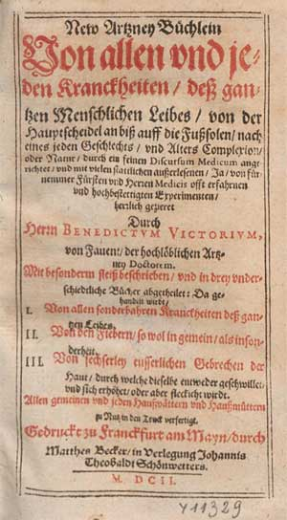 New Artzney Büchlein
Von allen vnd je-
den Kranckheiten / deß gan-
tzen Menschlichen Leibes / von der
Hauptscheidel an biß auff die Fußsolen / nach
eines jeden Geschlechts / vnd Alters Complexion /
oder Natur / durch ein feinen Discursum Medicum ange-
richtet / vnd mit vielen stattlichen außerlesenen / Ja / von für-
nemmer Fürsten vnd Herren Medicis offt erfahrnen
vnd hochbestettigten Experimenten /
herrlich gezieret
Durch
Herrn BENEDICTVM VICTORIVM,
von Fauentz / der hochlöblichen Artz-
ney Doctorem.
Mit besonderm fleiß beschrieben / vnd in drey vnder-
schiedtliche Bücher abgetheilet: Da ge-
handlet wirdt /
I. Von allen sonderbahren Kranckheiten deß gan-
tzen Leibes.
II. Von den Fiebern / so wol in gemein / als inson-
derheit.
III. Von sechserley eusserlichen Gebrechen der
Haut / durch welche dieselbe entweder geschwillet /
vnd sich erhöhet / oder aber fleckicht wirdt.
Allen gemeinen vnd jeden Haußvättern vnd Haußmüttern
zu Nutz in den Truck verfertigt.
Gedruckt zu Franckfurt am Mayn / durch
Matthes Becker / in Verlegung Johannis
Theobaldt Schönwetters.
M. DCII.
411329